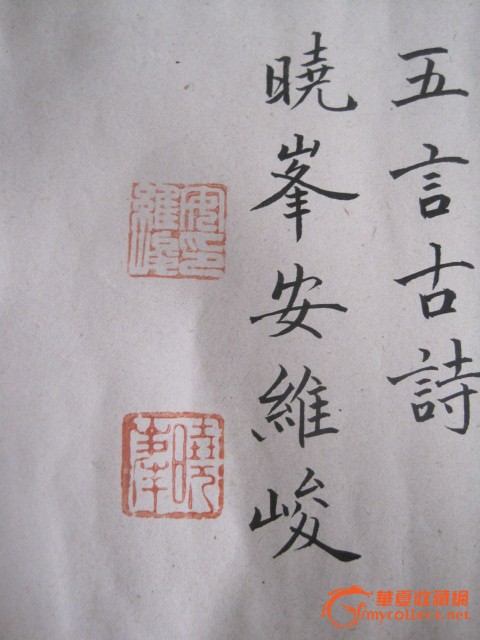 五言古詩
曉峯安維峻
安印維峻
曉峯
華夏收藏網
mycollect.net